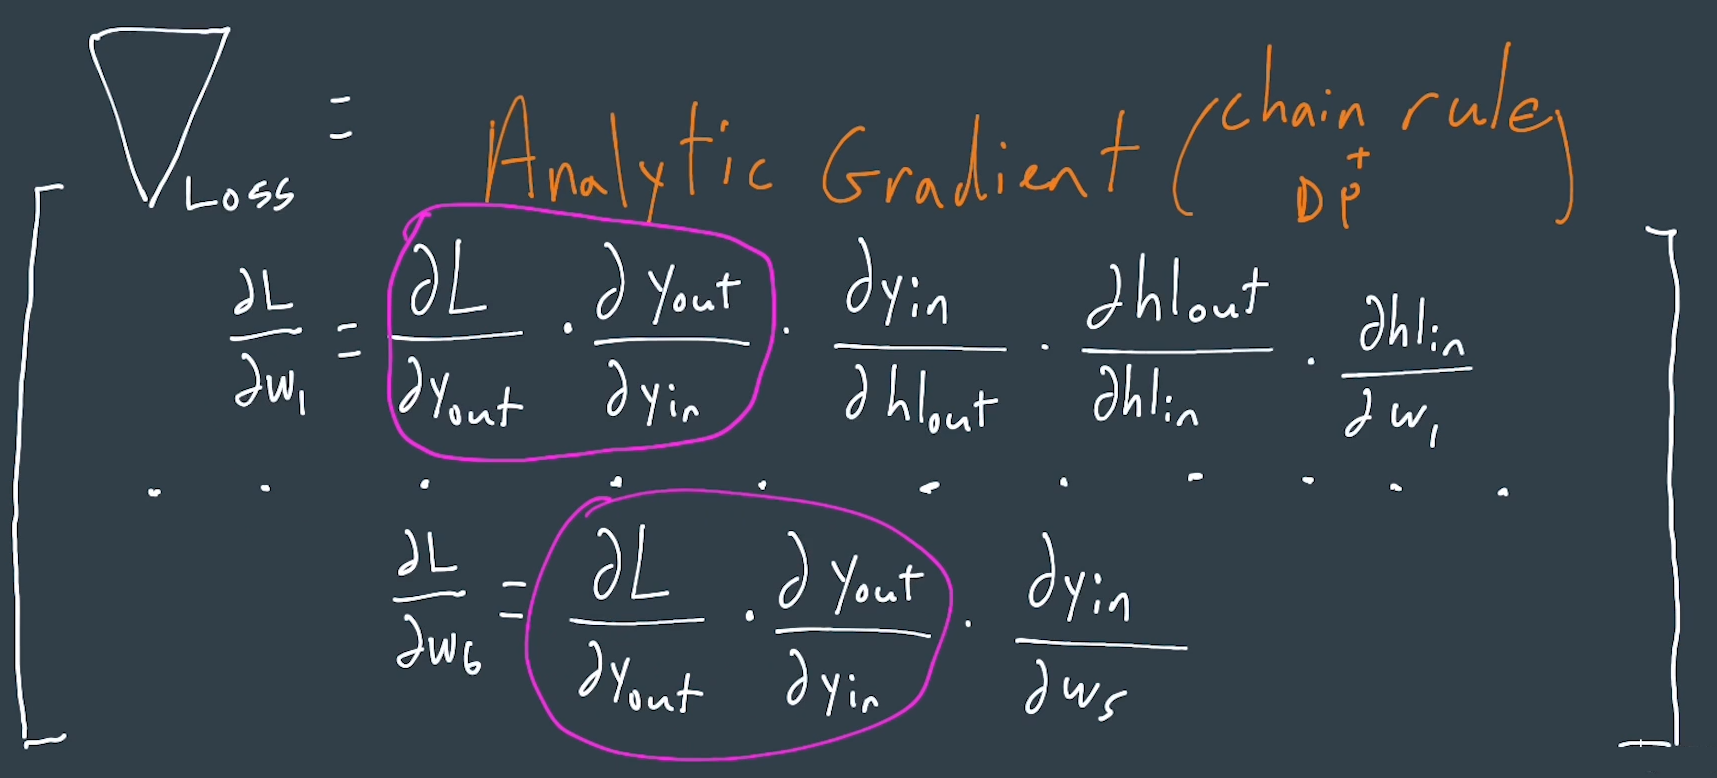 ∇Loss =
Analytic Gradient (chain rule + DP)
∂L/∂w₁ = ∂L/∂yout · ∂yout/∂yin · ∂yin/∂h1out · ∂h1out/∂h1in · ∂h1in/∂w₁
. . . . . . . . . . .
∂L/∂w₆ = ∂L/∂yout · ∂yout/∂yin · ∂yin/∂w₅